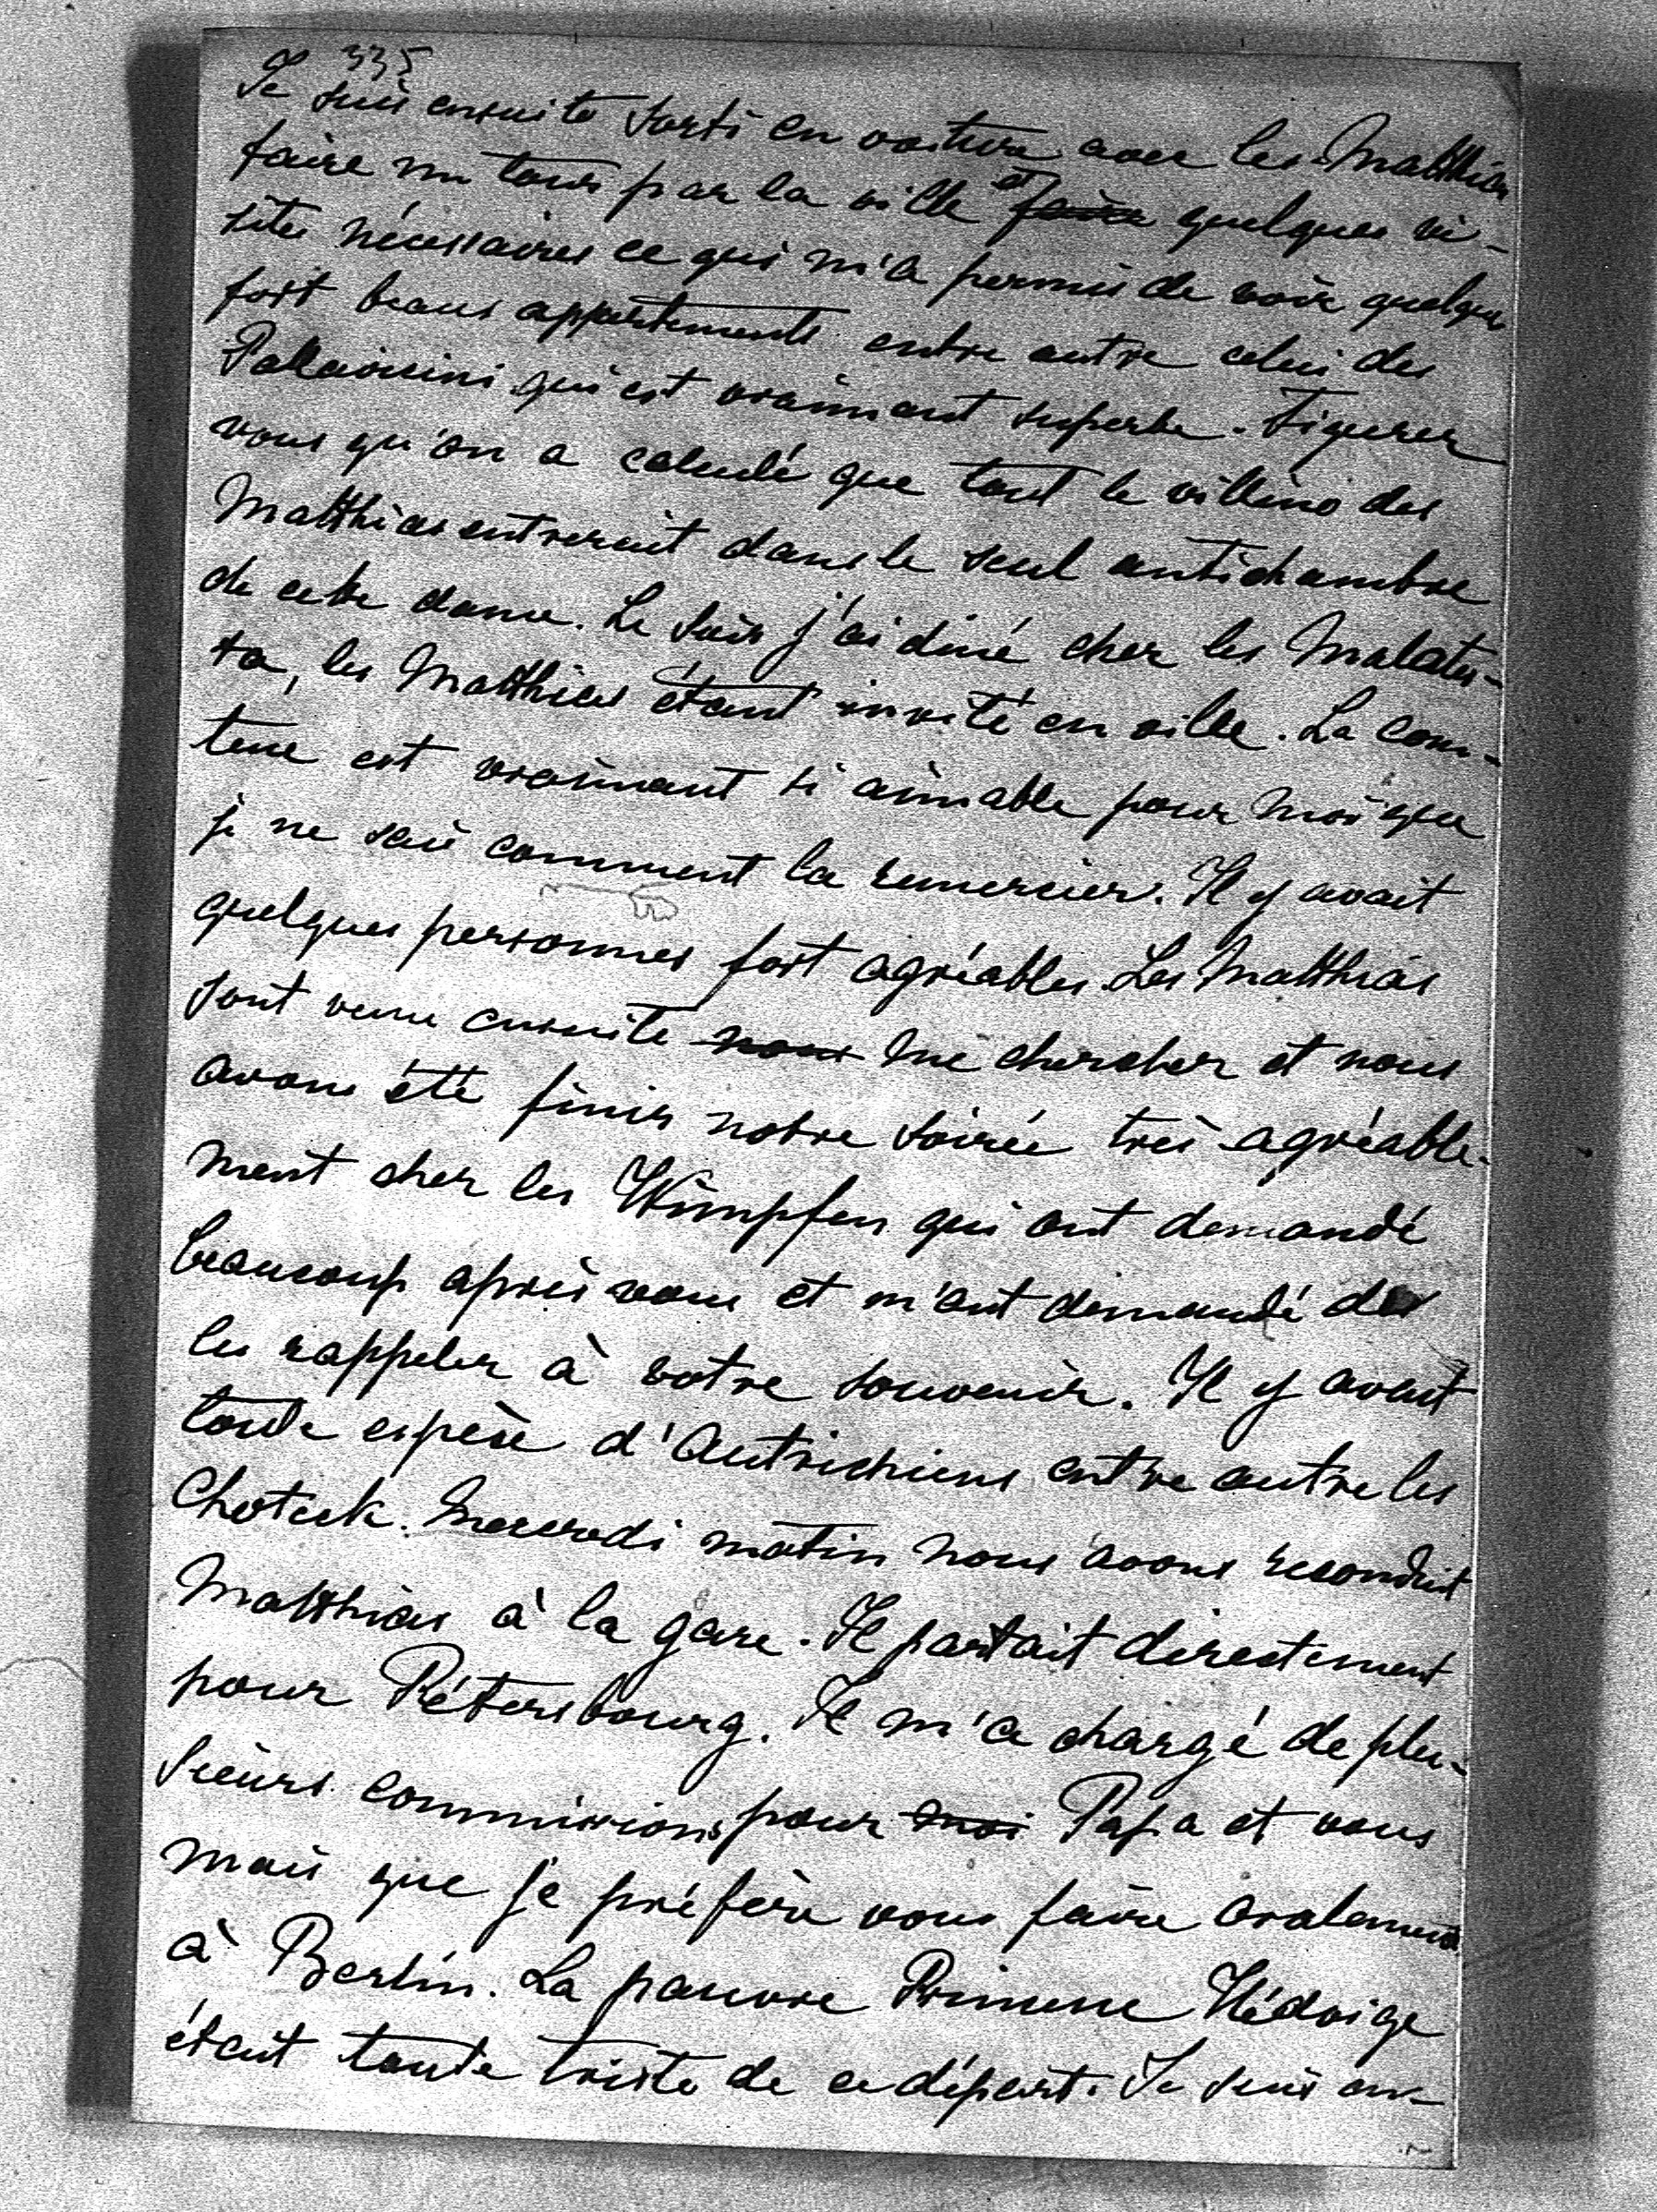 335
Je suis ensuite sorti en voiture avec les Matthias
faire un tour par la ville et faire quelques vi-
sites nécessaires ce qui m'a permis de voir quelques
fort beaux appartements entre autre celui des
Pallavicini qui est vraimant superbe. Figurez
vous qu'on a calculé que tout le villino des
Matthias entrerait dans le seul antichambre
de cette dame. Le soir j'ai diné chez les Malates-
ta, les Matthias étant invité en ville. La com-
tesse est vraimant si aimable pour moi que
je ne sais comment la remercier. Il y avait
quelques personnes fort agréables. Les Matthias
sont venu ensuite nous me chercher et nous
avons été finir notre soirée très agréable-
ment chez les Wimpfen qui ont demandé
beaucoup après vous et m'ont demandé de
les rappeler à votre souvenir. Il y avait
toute espèce d'Autrichiens entre autre les
Chotek. Mercredi matin nous avons reconduit
Matthias à la gare. Il partait directement
pour Pétersbourg. Il m'a chargé de plu-
sieurs commissions pour moi Papa et vous
mais que je préfère vous faire oralement
à Berlin. La pauvre Princesse Hédvige
était toute triste de ce départ. Je suis en-